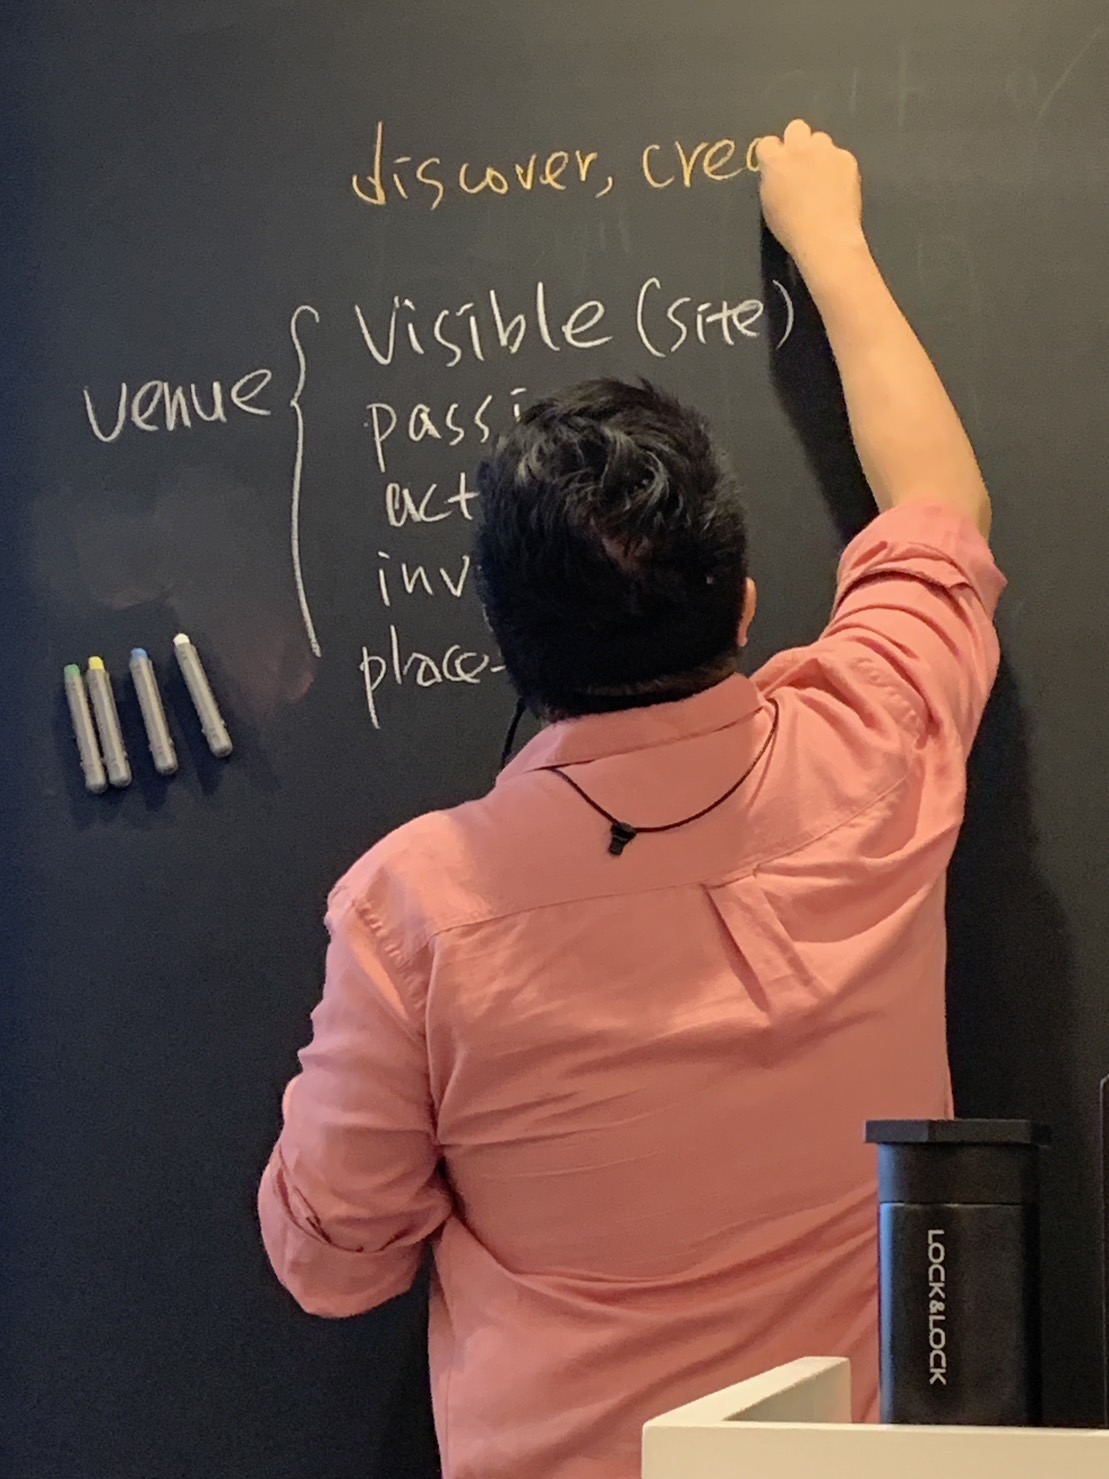 discover, crea
venue
Visible (site)
passi
act
inv
place-
LOCK&LOCK